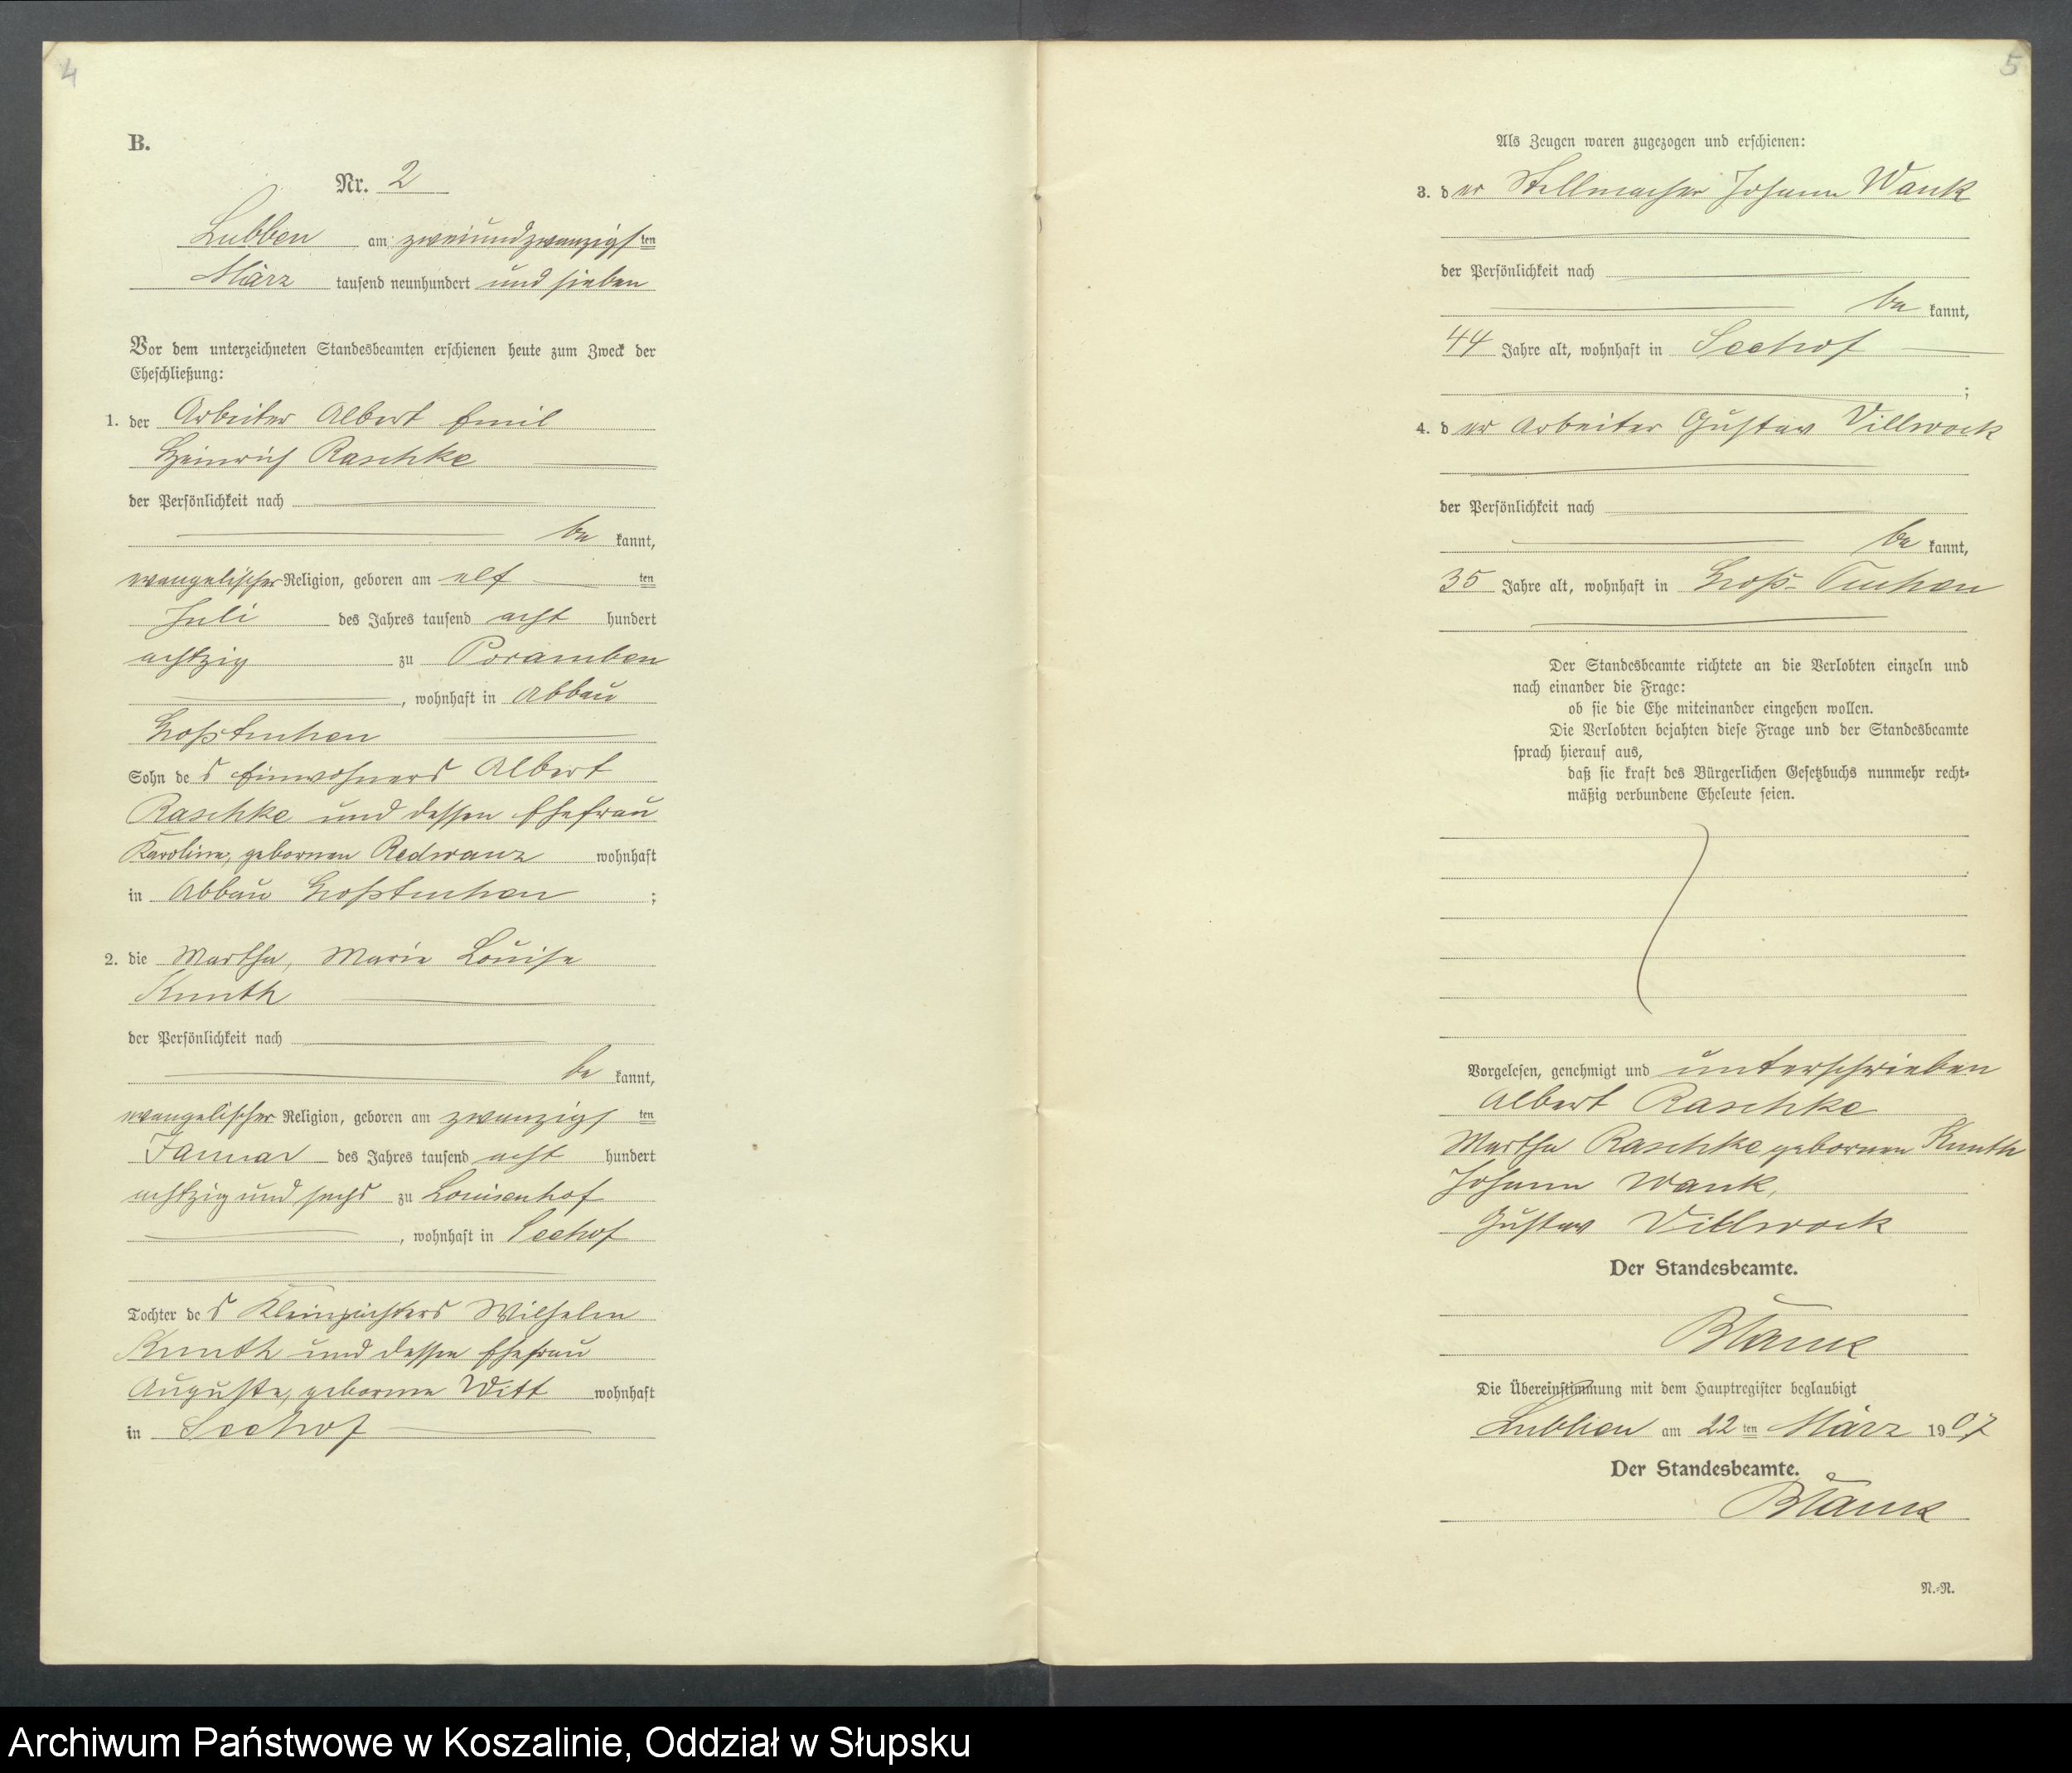 4
B.
Nr. 2
Lubben am zweiundzwanzigsten
März tausend neunhundert und sieben
Vor dem unterzeichneten Standesbeamten erschienen heute zum Zweck der
Eheschließung:
1. der Arbeiter Albert Emil
Heinrich Raschke
der Persönlichkeit nach
be kannt,
evangelischer Religion, geboren am elf ten
Juli des Jahres tausend acht hundert
achtzig zu
, wohnhaft in Abbau
Großtuchen
Sohn des Einwohners Albert
Raschke und dessen Ehefrau
Karoline, geborenen Redwanz wohnhaft
in Abbau Großtuchen ;
2. die Martha, Marie Louise
Knuth
der Persönlichkeit nach
be kannt,
evangelischer Religion, geboren am zwanzigsten
Januar des Jahres tausend acht hundert
achtzig und sechs zu Louisenhof
, wohnhaft in Seehof
Tochter des Kleinpächters Wilhelm
Knuth und dessen Ehefrau
Auguste, geborene Witt wohnhaft
in Seehof
5
Als Zeugen waren zugezogen und erschienen:
3. der Stellmacher Johann Wank
der Persönlichkeit nach
be kannt,
44 Jahre alt, wohnhaft in Seehof
;
4. der Arbeiter Gustav Villwock
der Persönlichkeit nach
be kannt,
35 Jahre alt, wohnhaft in Groß-Tuchen
Der Standesbeamte richtete an die Verlobten einzeln und
nach einander die Frage:
ob sie die Ehe miteinander eingehen wollen.
Die Verlobten bejahten diese Frage und der Standesbeamte
sprach hierauf aus,
daß sie kraft des Bürgerlichen Gesetzbuchs nunmehr recht-
mäßig verbundene Eheleute seien.
Vorgelesen, genehmigt und unterschrieben
Albert Raschke
Martha Raschke geborenen Knuth
Johann Wank,
Gustav Villwock
Der Standesbeamte.
Die Übereinstimmung mit dem Hauptregister beglaubigt
Lubben am 22 ten März 1907
Der Standesbeamte.
N.-N.
Archiwum Państwowe w Koszalinie, Oddział w Słupsku